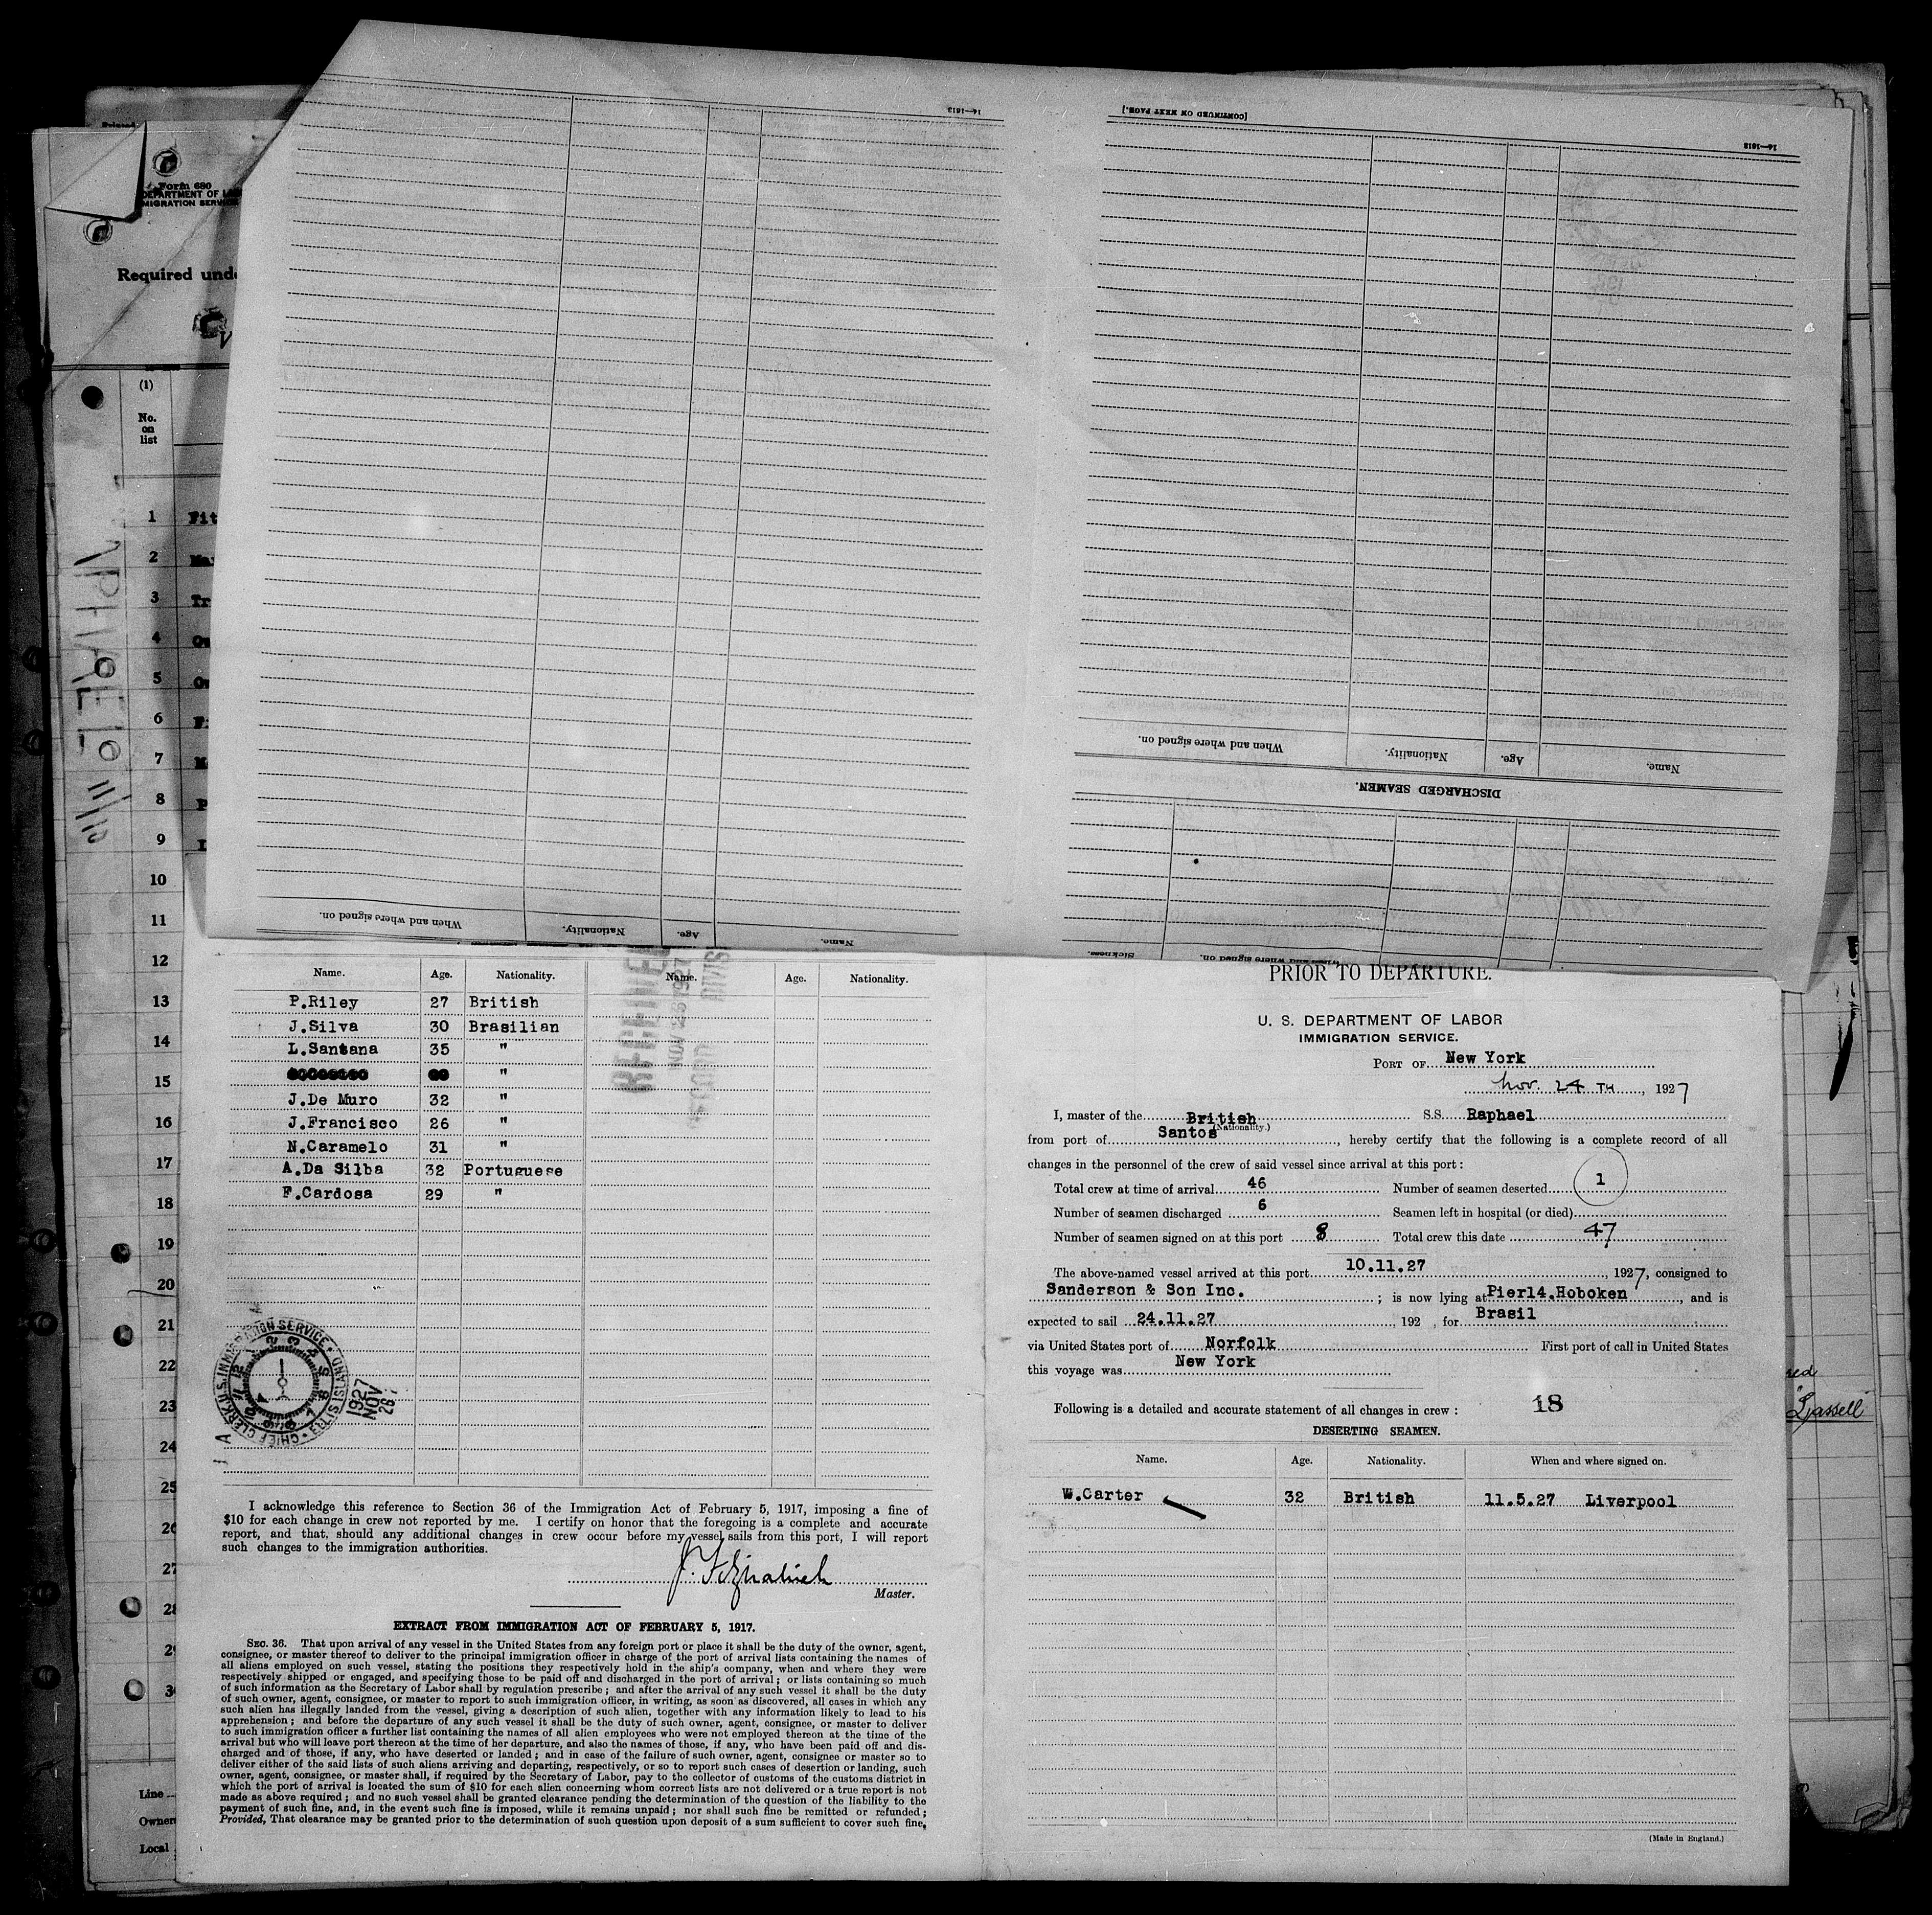 Form 680
DEPARTMENT OF
IMMIGRATION SERVICE
Required unde
(1)
No.
on
list
1
2
3
4
5
6
7
8
9
10
11
12
13
14
15
16
17
18
19
20
21
22
23
24
25
26
27
28
29
Line
Owners
Local
16—1613
[CONTINUED ON NEXT PAGE.]
16—1613
Name. Age. Nationality. When and where signed on.
DISCHARGED SEAMEN.
Name. Age. Nationality. When and where signed on.
When and where signed on. Sickness.
Name. Age. Nationality. Name. Age. Nationality.
P.Riley 27 British
J.Silva 30 Brasilian
L.Santana 35 "
"
J.De Muro 32 "
J.Francisco 26 "
N.Caramelo 31 "
A.Da Silba 32 Portuguese
F.Cardosa 29 "
RECEIVED
NOV 1927
1927
NOV
26
I acknowledge this reference to Section 36 of the Immigration Act of February 5, 1917, imposing a fine of
$10 for each change in crew not reported by me. I certify on honor that the foregoing is a complete and accurate
report, and that, should any additional changes in crew occur before my vessel sails from this port, I will report
such changes to the immigration authorities.
Master.
EXTRACT FROM IMMIGRATION ACT OF FEBRUARY 5, 1917.
SEC. 36. That upon arrival of any vessel in the United States from any foreign port or place it shall be the duty of the owner, agent,
consignee, or master thereof to deliver to the principal immigration officer in charge of the port of arrival lists containing the names of
all aliens employed on such vessel, stating the positions they respectively hold in the ship's company, when and where they were
respectively shipped or engaged, and specifying those to be paid off and discharged in the port of arrival; or lists containing so much
of such information as the Secretary of Labor shall by regulation prescribe; and after the arrival of any such vessel it shall be the duty
of such owner, agent, consignee, or master to report to such immigration officer, in writing, as soon as discovered, all cases in which any
such alien has illegally landed from the vessel, giving a description of such alien, together with any information likely to lead to his
apprehension; and before the departure of any such vessel it shall be the duty of such owner, agent, consignee, or master to deliver
to such immigration officer a further list containing the names of all alien employees who were not employed thereon at the time of the
arrival but who will leave port thereon at the time of her departure, and also the names of those, if any, who have been paid off and dis-
charged and of those, if any, who have deserted or landed; and in case of the failure of such owner, agent, consignee or master so to
deliver either of the said lists of such aliens arriving and departing, respectively, or so to report such cases of desertion or landing, such
owner, agent, consignee, or master shall, if required by the Secretary of Labor, pay to the collector of customs of the customs district in
which the port of arrival is located the sum of $10 for each alien concerning whom correct lists are not delivered or a true report is not
made as above required; and no such vessel shall be granted clearance pending the determination of the question of the liability to the
payment of such fine, and, in the event such fine is imposed, while it remains unpaid; nor shall such fine be remitted or refunded;
Provided, That clearance may be granted prior to the determination of such question upon deposit of a sum sufficient to cover such fine,
PRIOR TO DEPARTURE.
U. S. DEPARTMENT OF LABOR
IMMIGRATION SERVICE.
PORT OF New York
Nov. 24 TH, 1927
I, master of the British S.S. Raphael
(Nationality.)
from port of Santos, hereby certify that the following is a complete record of all
changes in the personnel of the crew of said vessel since arrival at this port:
Total crew at time of arrival 46 Number of seamen deserted 1
Number of seamen discharged 6 Seamen left in hospital (or died)
Number of seamen signed on at this port 8 Total crew this date 47
The above-named vessel arrived at this port 10.11.27, 1927, consigned to
Sanderson & Son Inc.; is now lying at Pier14.Hoboken, and is
expected to sail 24.11.27, 192 , for Brasil
via United States port of Norfolk First port of call in United States
this voyage was New York
Following is a detailed and accurate statement of all changes in crew: 18
DESERTING SEAMEN.
Name. Age. Nationality. When and where signed on.
W.Carter 32 British 11.5.27 Liverpool
(Made in England.)